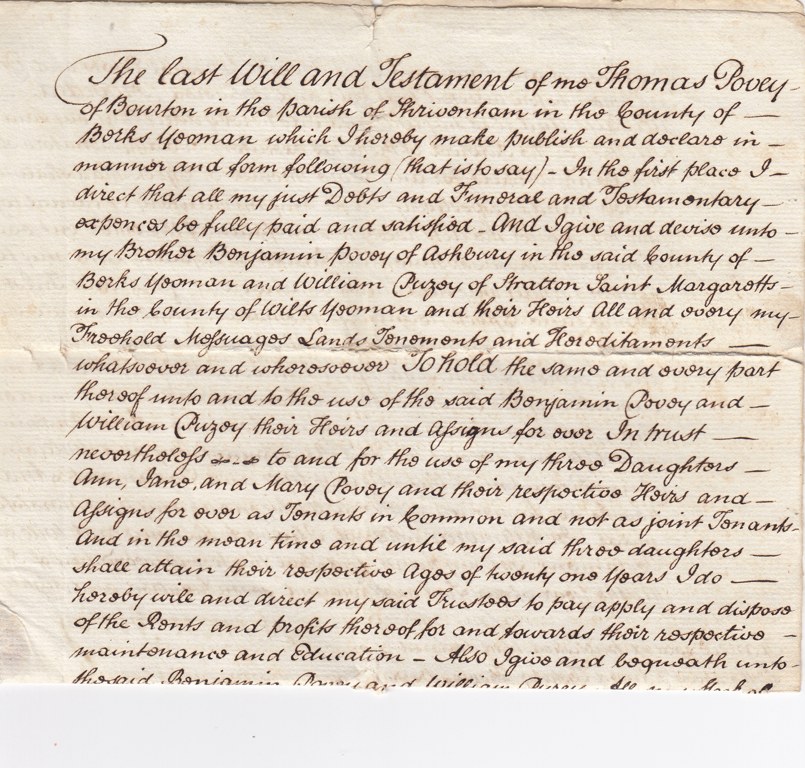 The last Will and Testament of me Thomas Povey -
of Bourton in the parish of Shrivenham in the County of —
Berks Yeoman which I hereby make publish and declare in -
manner and form following (that is to say) - In the first place I -
direct that all my just Debts and Funeral and Testamentary -
expences be fully paid and satisfied - And I give and devise unto -
my Brother Benjamin Povey of Ashbury in the said County of —
Berks Yeoman and William Puzey of Stratton Saint Margaretts -
in the County of Wilts Yeoman and their Heirs All and every my -
Freehold Messuages Lands Tenements and Hereditaments —
whatsoever and wheresoever To hold the same and every part
thereof unto and to the use of the said Benjamin Povey and —
William Puzey their Heirs and Assigns for ever In trust —
nevertheless to and for the use of my three Daughters —
Ann, Jane, and Mary Povey and their respective Heirs and —
Assigns for ever as Tenants in Common and not as joint Tenants -
And in the mean time and until my said three daughters —
shall attain their respective Ages of twenty one Years I do —
hereby will and direct my said Trustees to pay apply and dispose
of the Rents and profits thereof for and towards their respective -
maintenance and Education - Also I give and bequeath unto -
the said Benjamin Povey and William Puzey All my Stock of